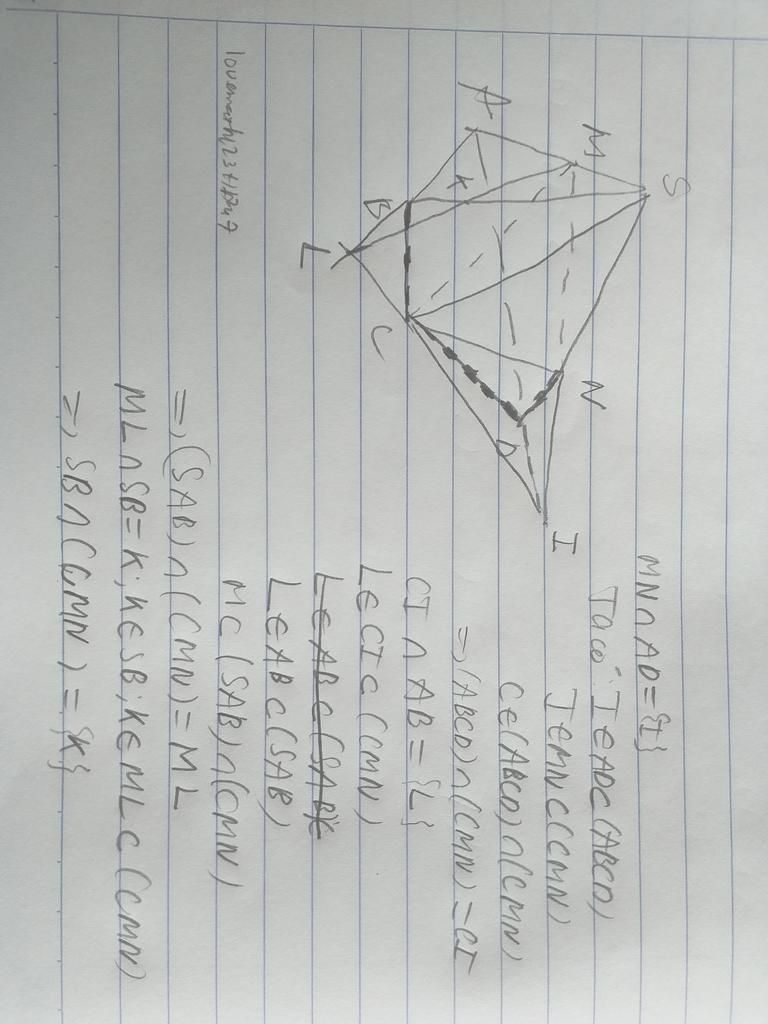 S
M
A
K
B
L
C
N
D
I
MN∩AD={I}
Ta có: I∈AD⊂(ABCD)
I∈MN⊂(CMN)
C∈(ABCD)∩(CMN)
=>(ABCD)∩(CMN)=CI
CI∩AB={L}
L∈CI⊂(CMN)
L∈AB⊂(SAB)
L∈AB⊂(SAB)
M⊂(SAB)∩(CMN)
=>(SAB)∩(CMN)=ML
ML∩SB=K;K∈SB;K∈ML⊂(CMN)
=>SB∩(CMN)={K}